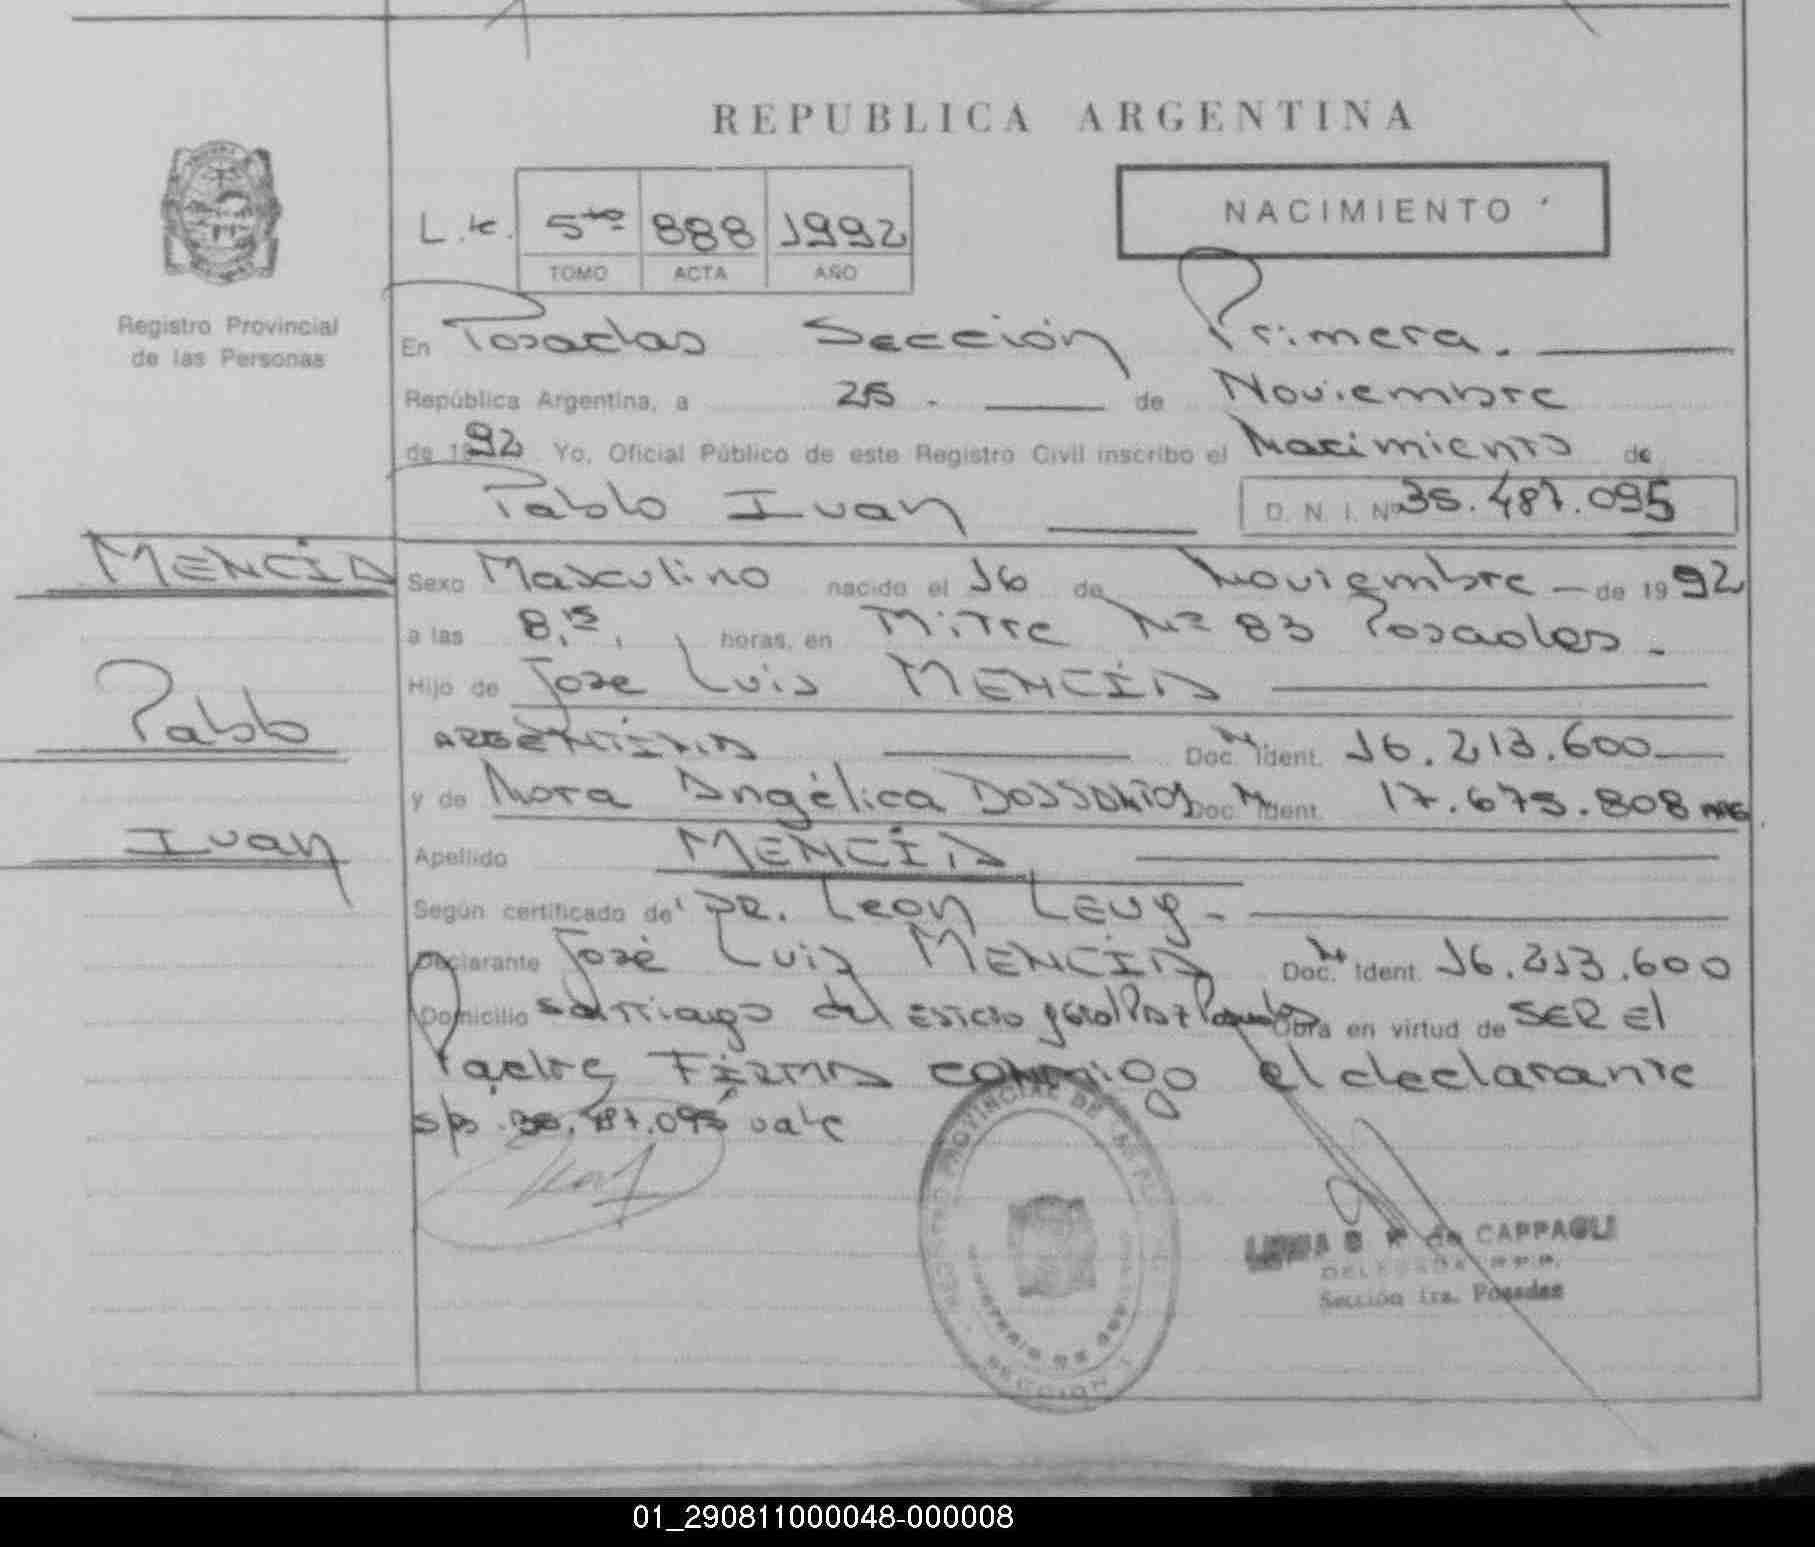 REPUBLICA ARGENTINA
NACIMIENTO
L.te. 5to 888 1992
TOMO ACTA AÑO
Registro Provincial
de las Personas
En Posadas Sección Primera.
República Argentina, a 25. de Noviembre
de 1992 Yo, Oficial Público de este Registro Civil inscribo el Nacimiento de
Pablo Ivan D. N. I. Nº 35.487.095
MENCÍA
Sexo Masculino nacido el 16 de Noviembre de 1992
a las 8,15, horas, en Mitre Nº 83 Posadas.
Hijo de Jose Luis MENCÍA
Pablo
ARGENTINA Doc. M. Ident. 16.213.600
y de Nora Angélica DOSSANTOS Doc. M. Ident. 17.675.808
Ivan
Apellido MENCÍA
Según certificado de DR. Leon Levy.
Declarante José Luis MENCÍA Doc. M. Ident. 16.213.600
Domicilio Santiago del estero y Obra en virtud de SER El
Padre FIRMA conmigo el declarante
s/b. 35.487.095 vale
REGISTRO PROVINCIAL DE
MINISTERIO DE
SECCION
de CAPPAGLI
DELEGADA R.P.P.
Sección 1ra. Posadas
01_290811000048-000008